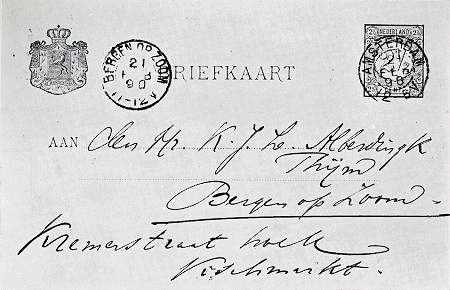 BERGEN OP ZOOM
21
FEB
90
11-12V
BRIEFKAART
NEDERLAND
2½
CENT
AMSTERDAM
21
FEB
90
AAN den Hr. K. J. L. Alberdingk
Thijm
Bergen op Zoom.
Kremerstraat hoek
Vischmarkt.